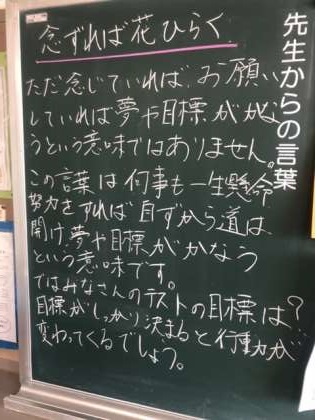 先生からの言葉
念ずれば花ひらく
ただ念じていれば、お願い
していれば夢や目標がかな
うという意味ではありません。
この言葉は何事も一生懸命
努力をすれば自ずから道は
開け、夢や目標がかなう
という意味です。
ではみなさんのテストの目標は？
目標がしっかり決まると行動が
変わってくるでしょう。